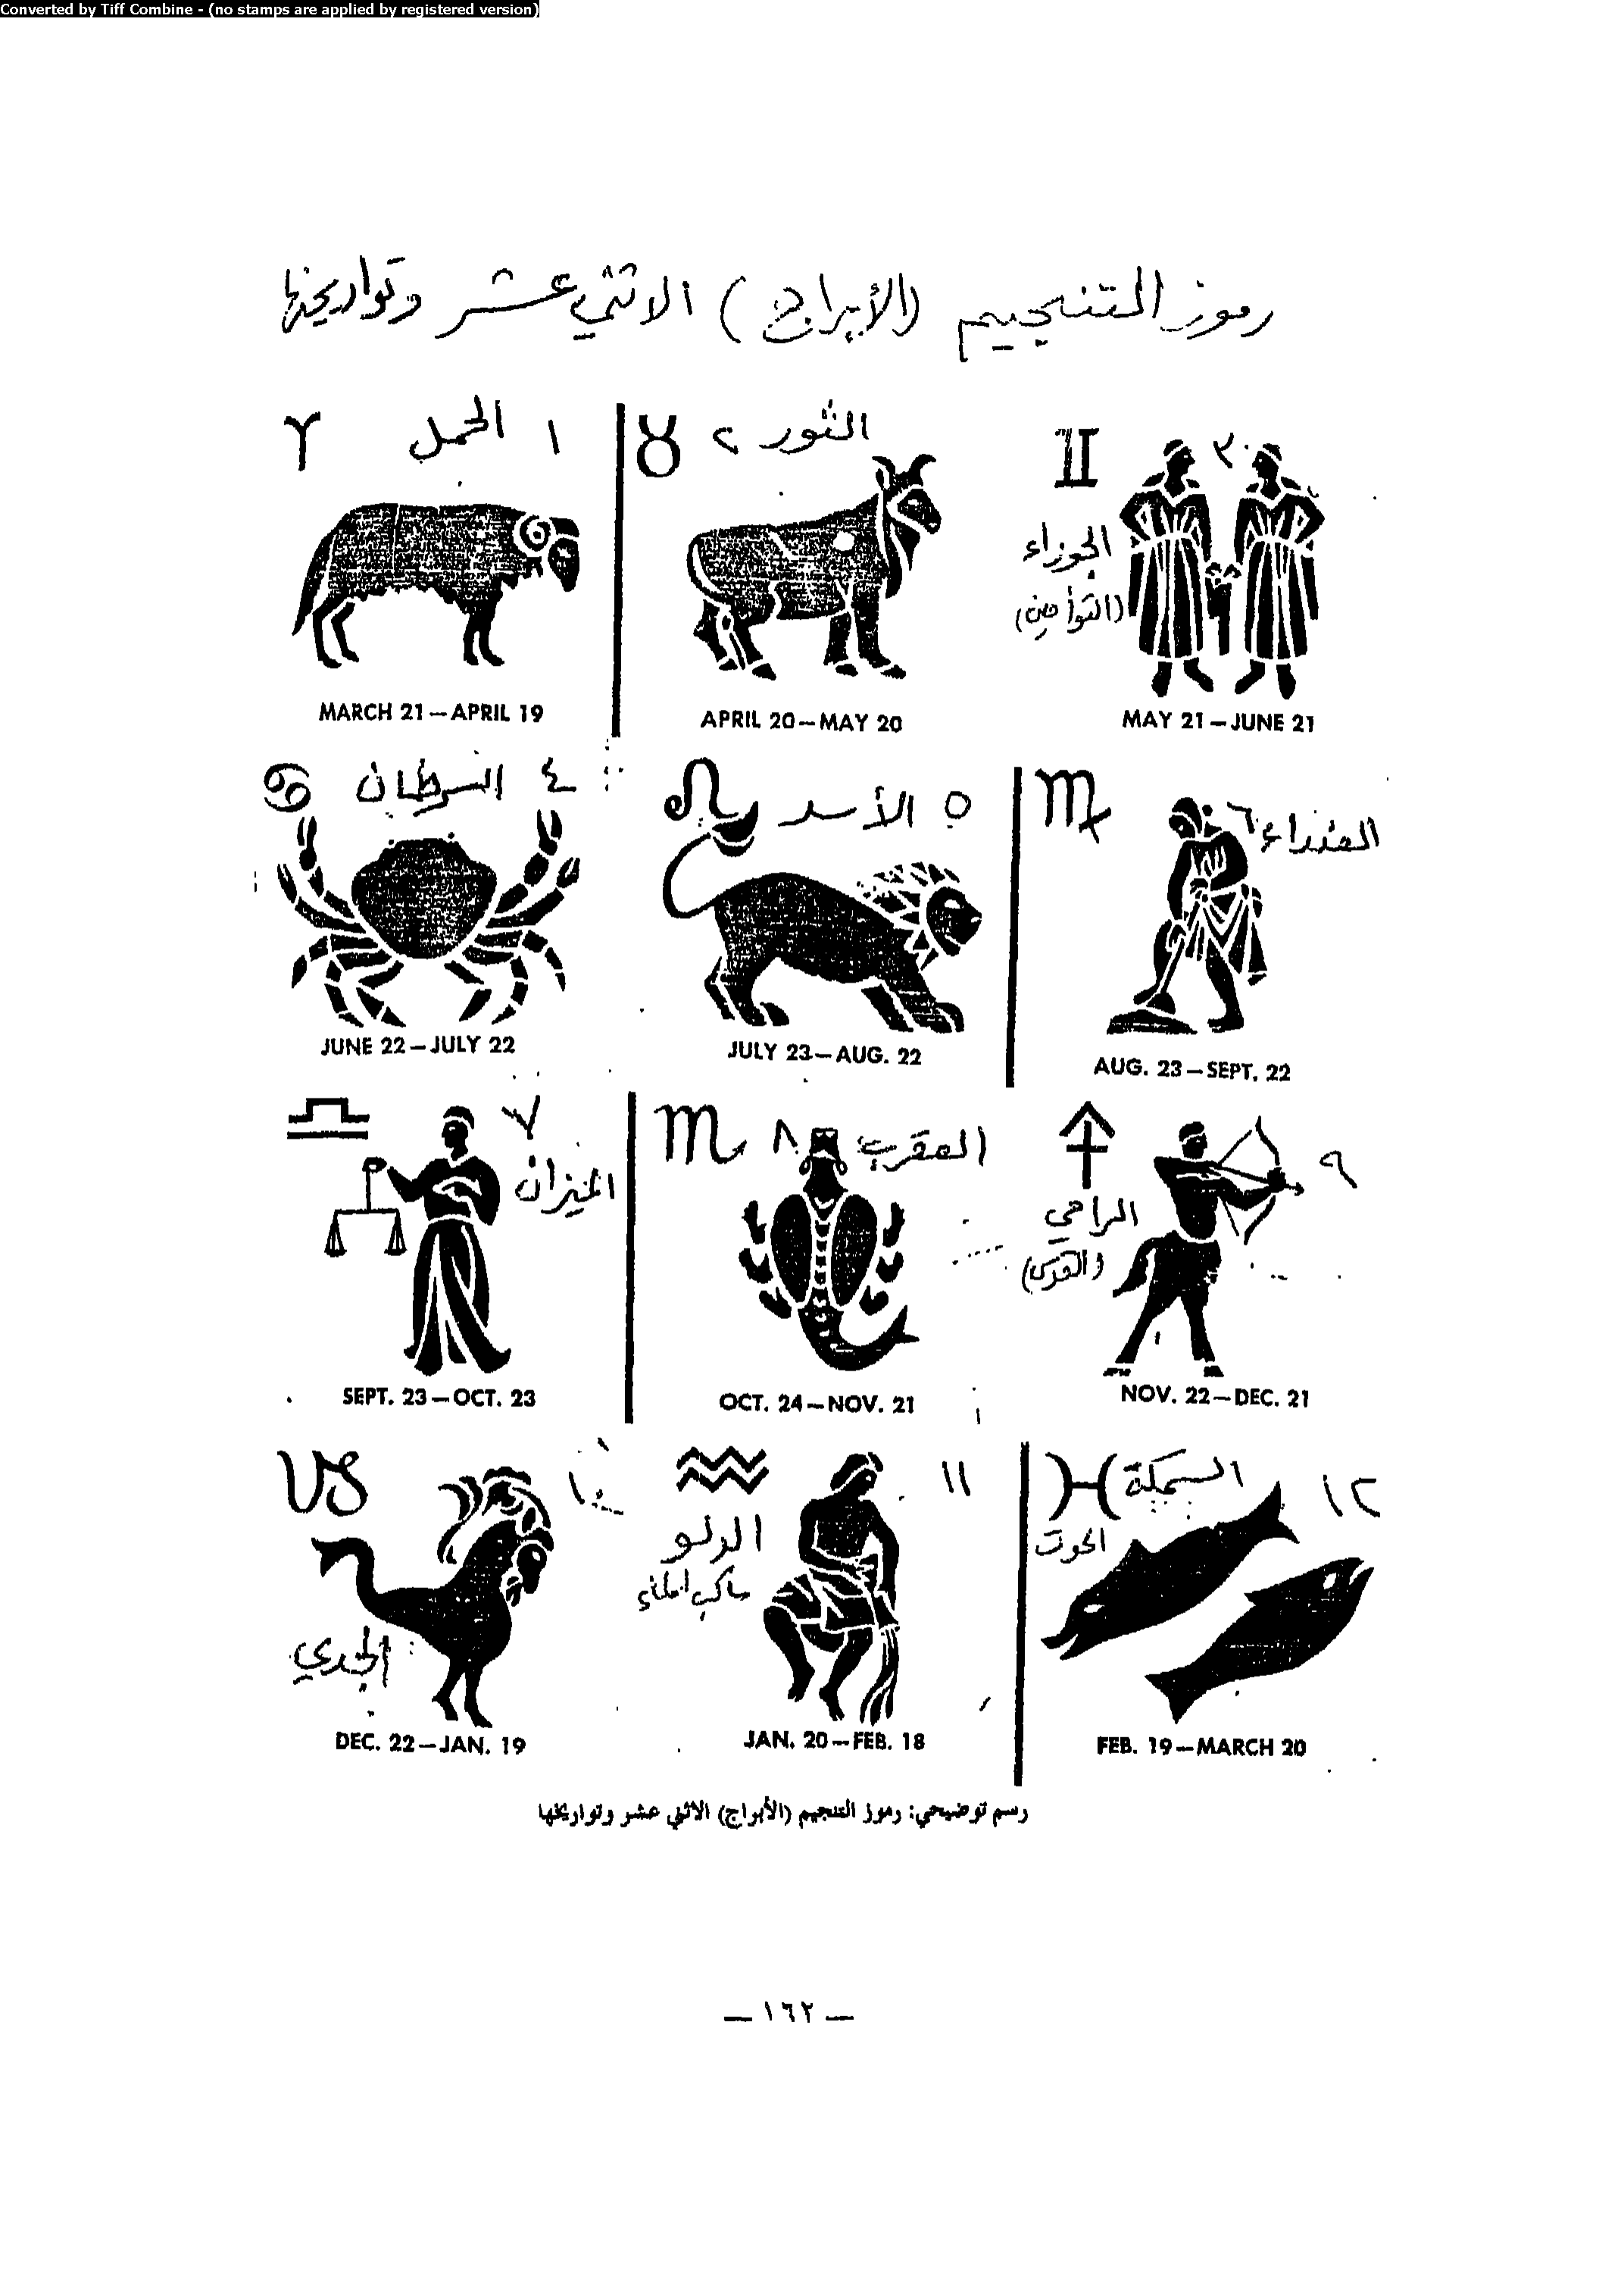 Converted by Tiff Combine - (no stamps are applied by registered version)
رموز التنجيم (الأبراج) الاثني عشر وتواريخها
♈ الحمل ١
MARCH 21—APRIL 19
♉ الثور ٢
APRIL 20—MAY 20
♊ ٣
الجوزاء
(التوأمين)
MAY 21—JUNE 21
♋ السرطان ٤
JUNE 22—JULY 22
♌ الأسد ٥
JULY 23—AUG. 22
♍ ٦ العذراء
AUG. 23—SEPT. 22
♎ ٧
الميزان
SEPT. 23—OCT. 23
♏ ٨ العقرب
OCT. 24—NOV. 21
♐ ٩
الرامي
(القوس)
NOV. 22—DEC. 21
♑ ١٠
الجدي
DEC. 22—JAN. 19
♒ ١١
الدلو
ساكب الماء
JAN. 20—FEB. 18
♓ السمكة ١٢
الحوت
FEB. 19—MARCH 20
رسم توضيحي: رموز التنجيم (الأبراج) الاثني عشر وتواريخها
— ١٦٢ —